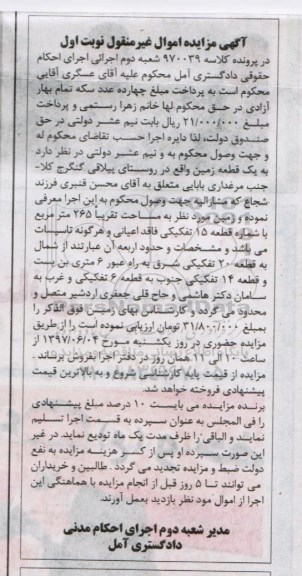 آگهی مزایده اموال غیرمنقول نوبت اول
در پرونده کلاسه ۹۷۰۰۳۹ شعبه دوم اجرائی اجرای احکام
حقوقی دادگستری آمل محکوم علیه آقای عسگری آقایی
محکوم است به پرداخت مبلغ چهارده عدد سکه تمام بهار
آزادی در حق محکوم لها خانم زهرا رستمی و پرداخت
مبلغ ۲۱/۰۰۰/۰۰۰ ریال بابت نیم عشر دولتی در حق
صندوق دولت، لذا دایره اجرا حسب تقاضای محکوم له
و جهت وصول محکوم به و نیم عشر دولتی در نظر دارد
به یک قطعه زمین واقع در روستای ییلاقی گنگرج کلا-
جنب مرغداری بابایی متعلق به آقای محسن قنبری فرزند
شجاع که مشارالیه جهت وصول محکوم به این اجرا معرفی
نموده و زمین مورد نظر به مساحت تقریبا ۲۶۵ متر مربع
با شماره قطعه ۱۵ تفکیکی فاقد اعیانی و هرگونه تاسیات
می باشد و مشخصات و حدود اربعه آن عبارتند از شمال
به قطعه ۲۰ تفکیکی شرق به راه عبور ۶ متری بن بست
و قطعه ۱۴ تفکیکی جنوب به قطعه ۶ تفکیکی و غرب به
سامان دکتر هاشمی و حاج قلی جعفری اردشیر متصل و
محدود می گردد و کارشناس بهای زمین فوق الذکر را
بمبلغ ۳۱/۸۰۰/۰۰۰ تومان ارزیابی نموده است را از طریق
مزایده حضوری در روز یکشنبه مورخ ۱۳۹۷/۰۶/۰۴ از
ساعت ۱۰ الی ۱۱ همان روز در دفتر اجرا بفروش برساند .
مزایده از قیمت پایه کارشناسی شروع و به بالاترین قیمت
پیشنهادی فروخته خواهد شد.
برنده مزایده می بایست ۱۰ درصد مبلغ پیشنهادی
را فی المجلس به عنوان سپرده به قسمت اجرا تسلیم
نماید و الباقی را ظرف مدت یک ماه تودیع نماید. در غیر
این صورت سپرده او پس از کسر هزینه مزایده به نفع
دولت ضبط و مزایده تجدید می گردد . طالبین و خریداران
می توانند تا ۵ روز قبل از انجام مزایده با هماهنگی این
اجرا از اموال مود نظر بازدید بعمل آورند.
مدیر شعبه دوم اجرای احکام مدنی
دادگستری آمل